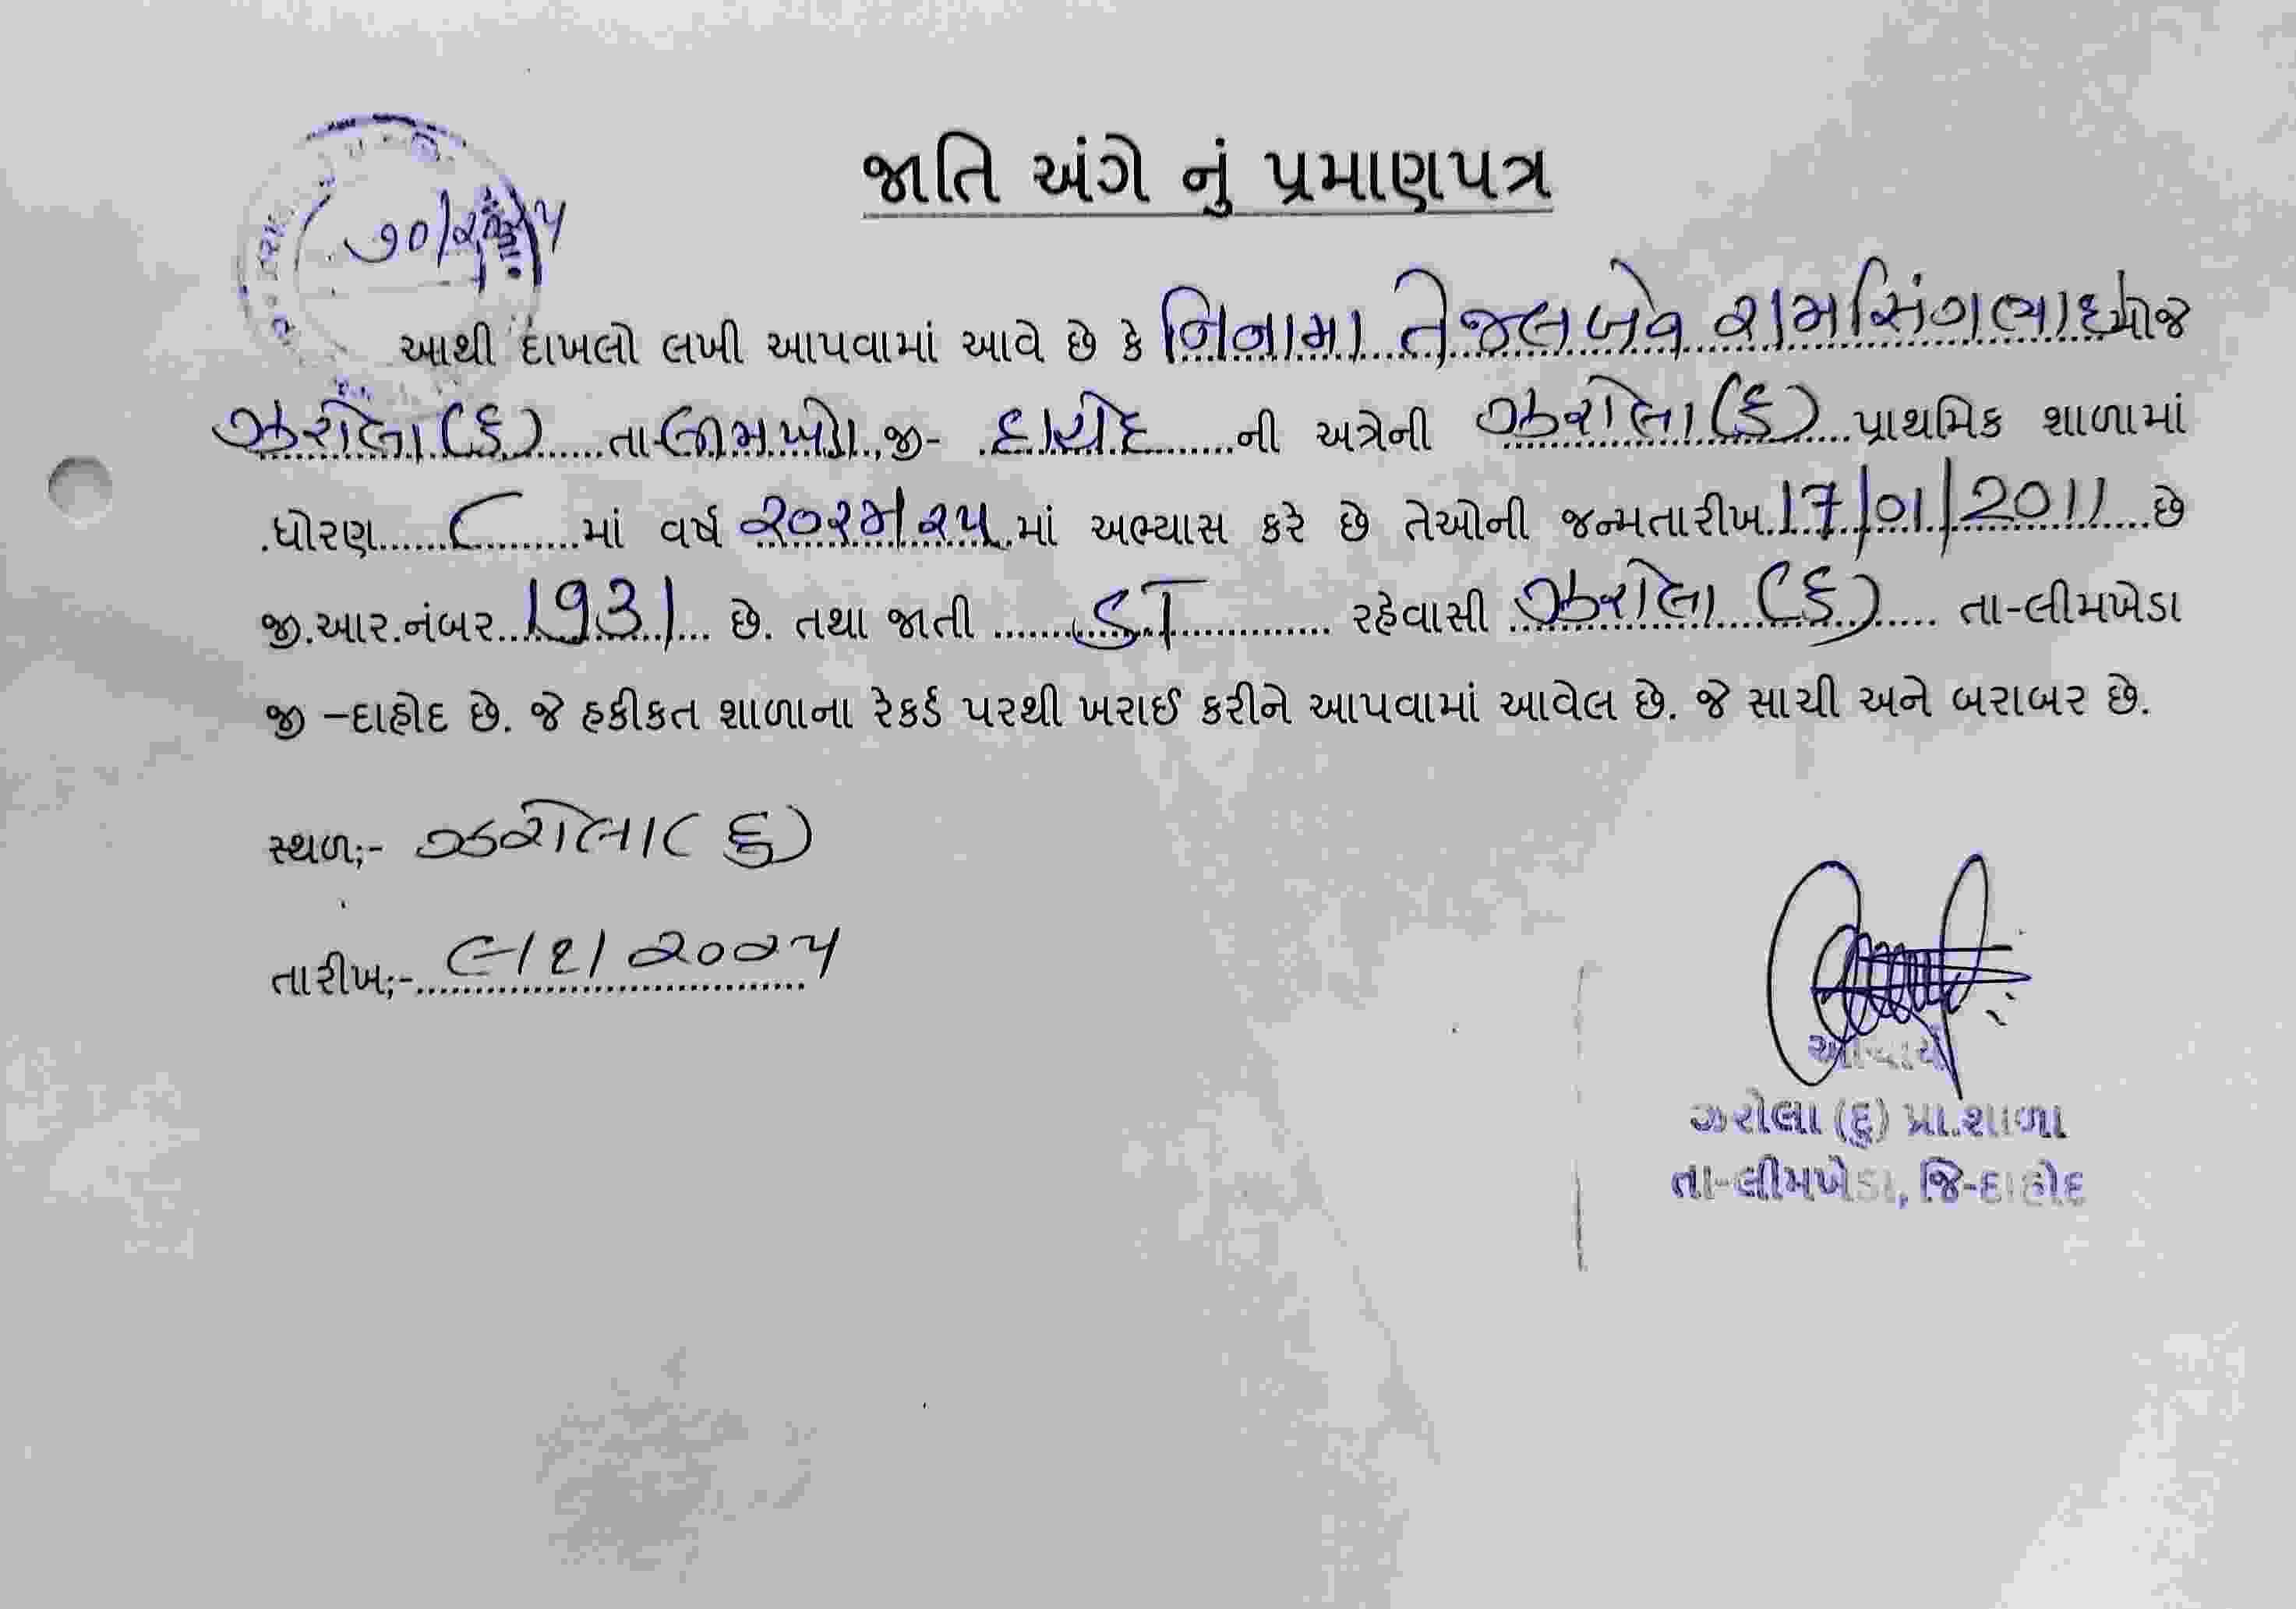 જાતિ અંગે નું પ્રમાણપત્ર
૭૦/
આથી દાખલો લખી આપવામાં આવે છે કે નિનામા તેજલબેન રામસિંગભાઇ મોજે
ઝરોલા (દુ) તા-લીમખેડા જી- દાહોદ ની અત્રેની ઝરોલા (દુ) પ્રાથમિક શાળામાં
.ધોરણ ૮ માં વર્ષ ૨૦૨૪/૨૫ માં અભ્યાસ કરે છે તેઓની જન્મતારીખ 17/01/2011 છે
જી.આર.નંબર 1931 છે. તથા જાતી ST રહેવાસી ઝરોલા (દુ) તા-લીમખેડા
જી –દાહોદ છે. જે હકીકત શાળાના રેકર્ડ પરથી ખરાઈ કરીને આપવામાં આવેલ છે. જે સાચી અને બરાબર છે.
સ્થળ;- ઝરોલા (દુ)
તારીખ;- ૯/૧/૨૦૨૫
આચાર્ય
ઝરોલા (દુ) પ્રા.શાળા
તા-લીમખેડા, જિ-દાહોદ